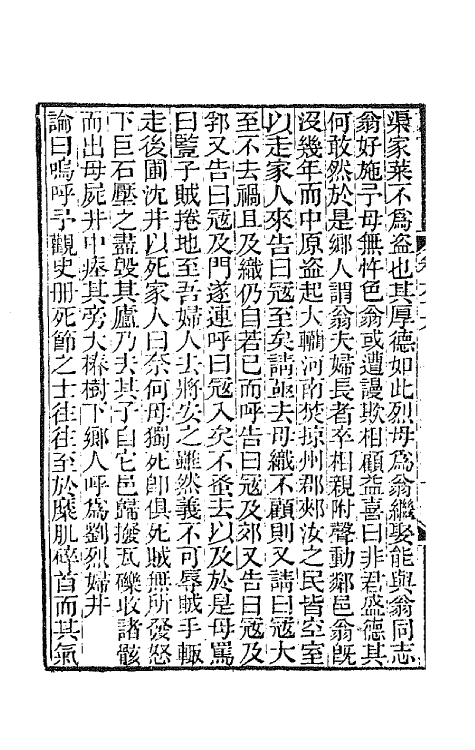 渠家葉不為盗也其厚德如此烈母為翁繼娶能與翁同志
翁好施予母無忤色翁或遭謾欺相顧益喜曰非君盛德其
何敢然於是鄉人謂翁夫婦長者卒相親附聲動鄰邑翁旣
沒幾年而中原盗起大䦨河南焚掠州郡郟汝之民皆空室
以走家人來告曰寇至矣請亟去母織不顧則又請曰寇大
至不去禍且及織仍自若已而呼告曰寇及郊又告曰寇及
郛又告曰寇及門遂連呼曰寇入矣不蚤去以及於是母罵
曰豎子賊捲地至吾婦人去將安之雖然義不可辱賊手輙
走後圃沈井以死家人曰奈何母獨死卽俱死賊無所發怒
下巨石壓之盡毀其廬乃去其子自它邑歸撥瓦礫收諸骸
而出母屍井中瘞其旁大椿樹下鄉人呼為劉烈婦井
論曰嗚呼予觀史册死節之士往往至於糜肌碎首而其氣